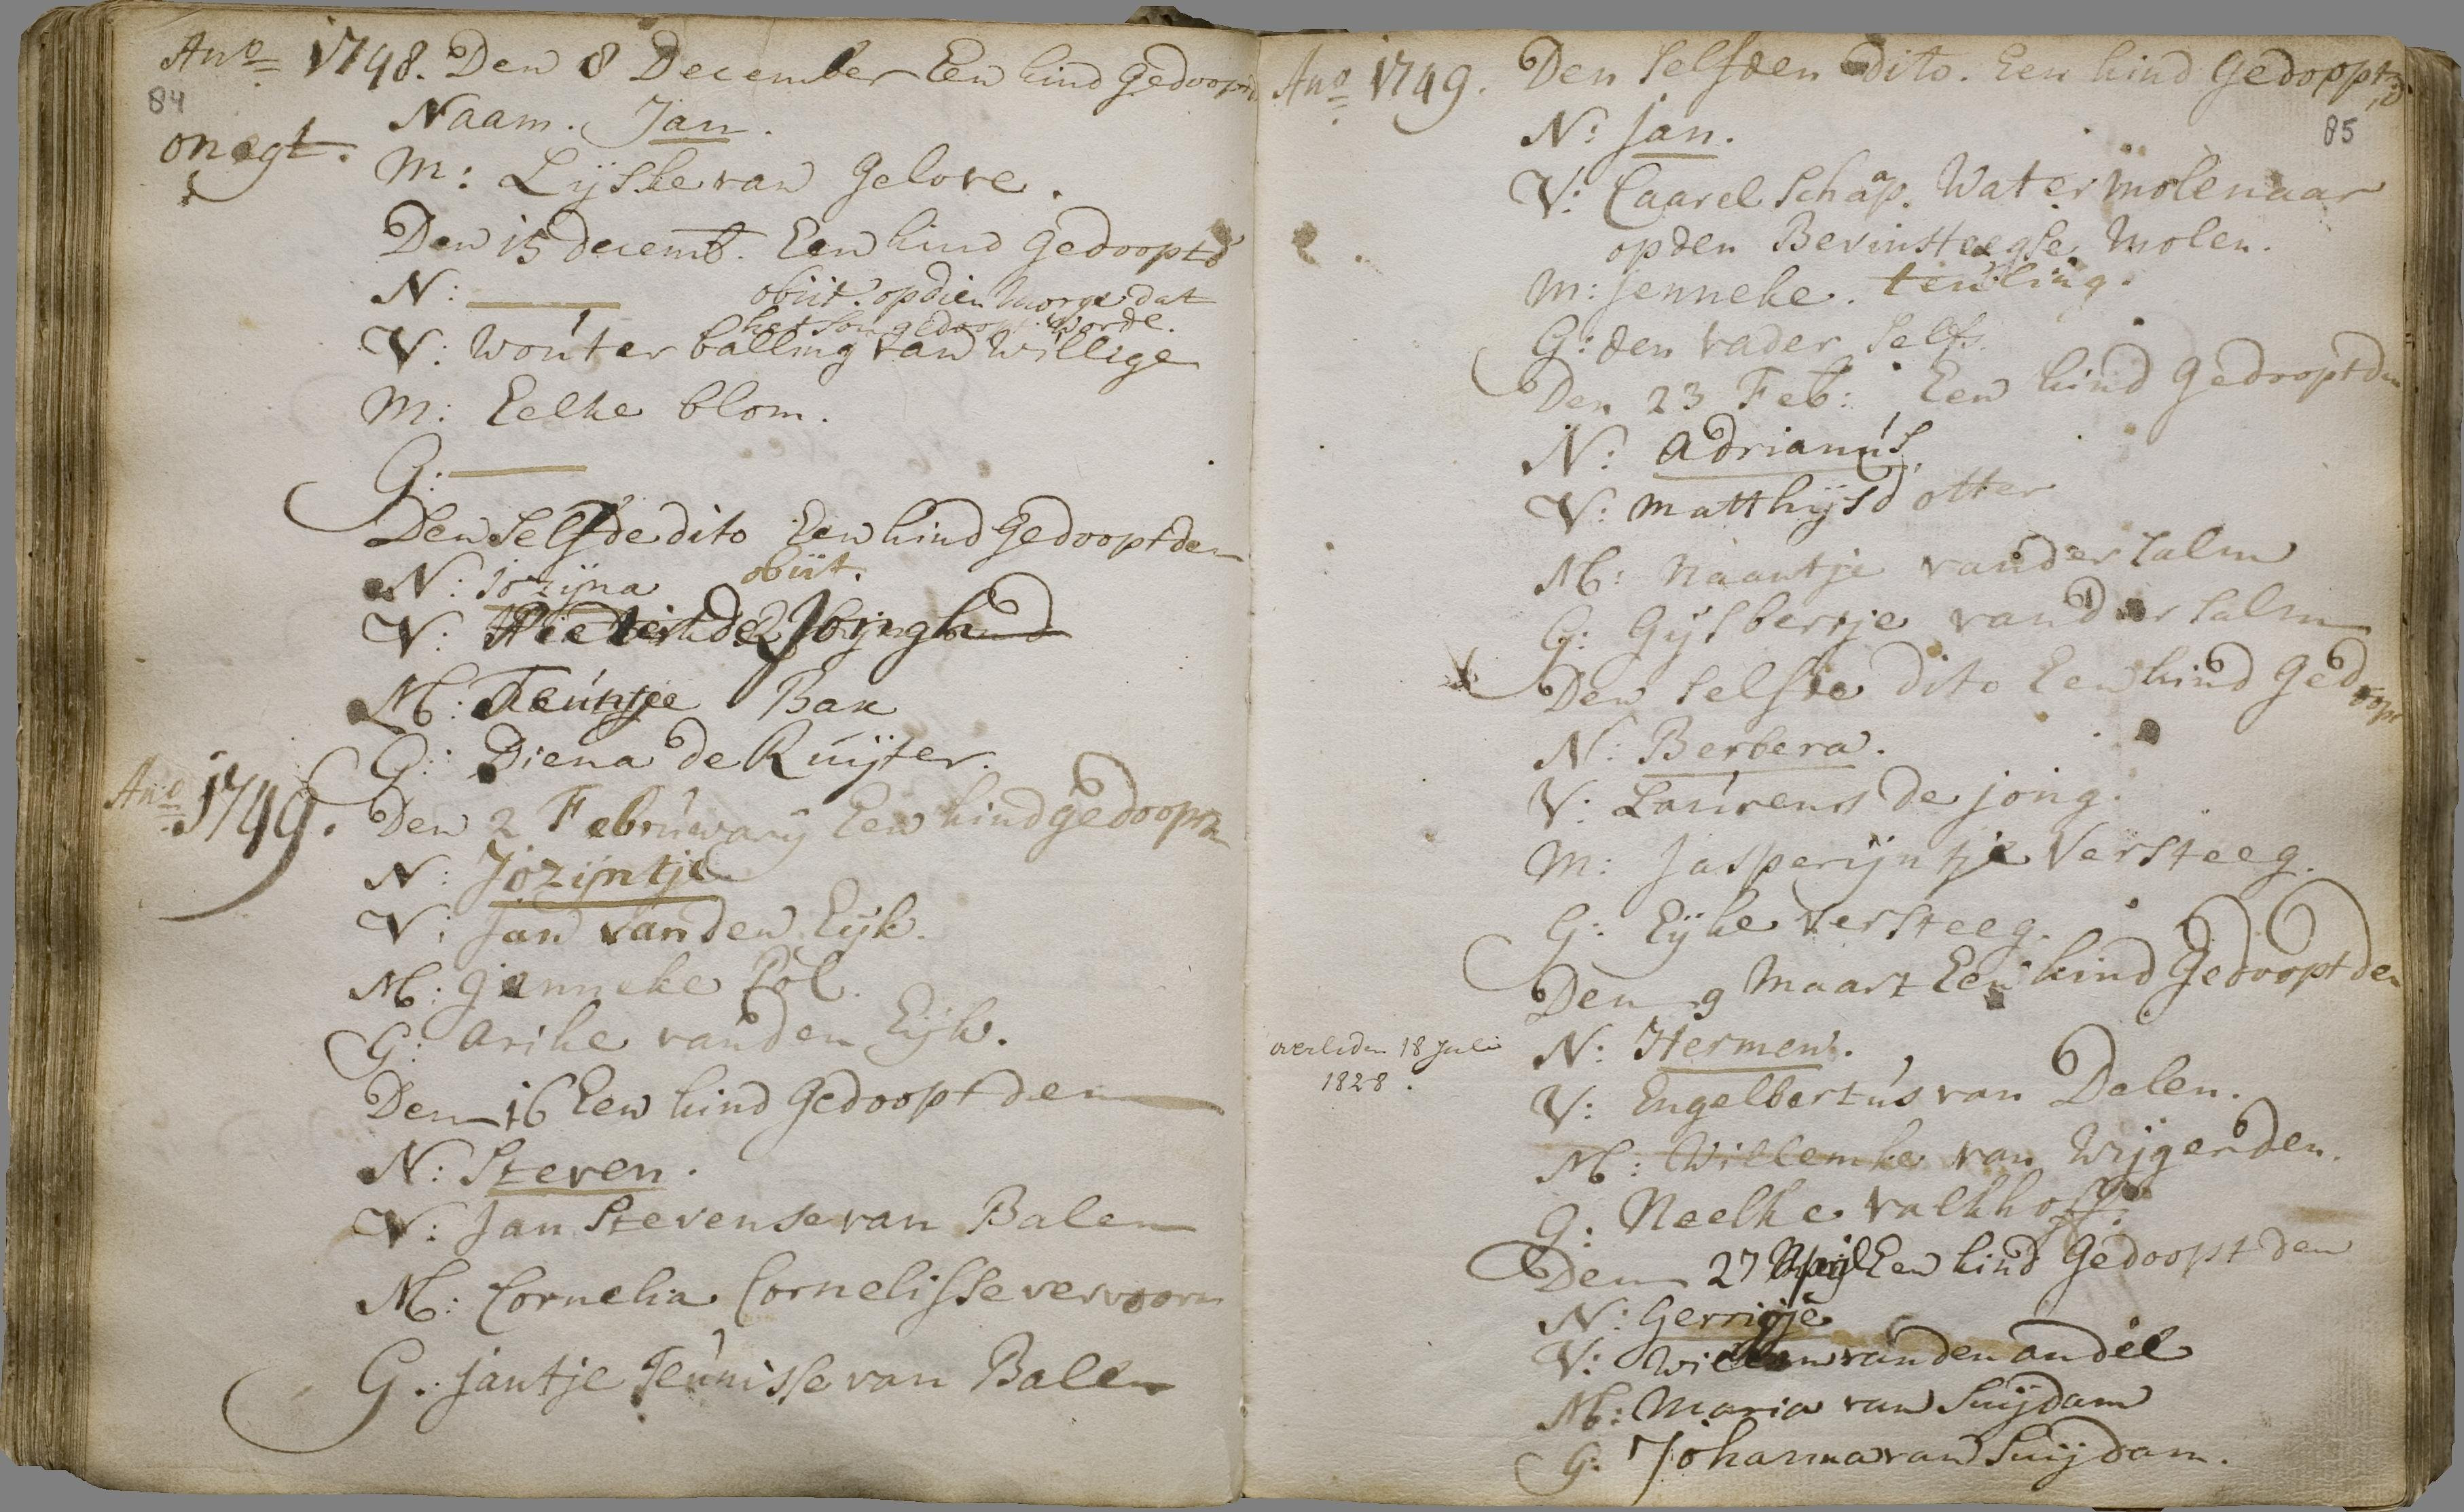 Ano 1748. Den 8 December Een kind gedoopt
84
onegt.
Naam. Jan.
M: Lijske van Gelove.
Den 15 decemb. Een kind gedoopt
N: obiit op dien morge dat
het sou gedoopt worde.
V: Wouter balling van Willige
M: Eelke blom.
G:
Den selfde dito Een kind Gedoopt den
N: Jozijna obiit.
V:
M: Teuntje Bax
G: Diena de Ruijter.
Ano 1749. Den 2 Februwarij Een kind gedoopt
N: Jozijntje
V: Jan van den Eijk.
M: Jenneke Pol.
G: Arike van den Eijk.
Den 16 Een kind Gedoopt den
N: Steven.
V: Jan Stevense van Balen
M: Cornelia Cornelisse vervoorn
G: Jantje Teunisse van Balen
Ano 1749. Den selfden dito. Een kind Gedoopt
85
N: Jan.
V: Caarel Schaap. Watermolenaar
op den Bevinsteegse Molen.
M: Jenneke. teuling.
G: den vader self.
Den 23 Feb: Een kind Gedoopt den
N: Adrianus.
V: Matthijs d otter
M: Naantje van der salm
G: Gijsbertje van der salm
Den selfde dito Een kind Gedoopt
N: Berbera.
V: Laurens de jong.
M: Jasperijntje Versteeg.
G: Eijke versteeg.
Den 9 Maart Een kind Gedoopt den
overleden 18 Juli
1828.
N: Hermen.
V: Engelbertus van Dalen.
M: Willemke van Wijgerden.
G: Neelke valkhoff.
Den 27 April Een kind Gedoopt den
N: Gerrigje
V: Willem van den andel
M: Maria van Suijdam
G: Johanna van Suijdam.